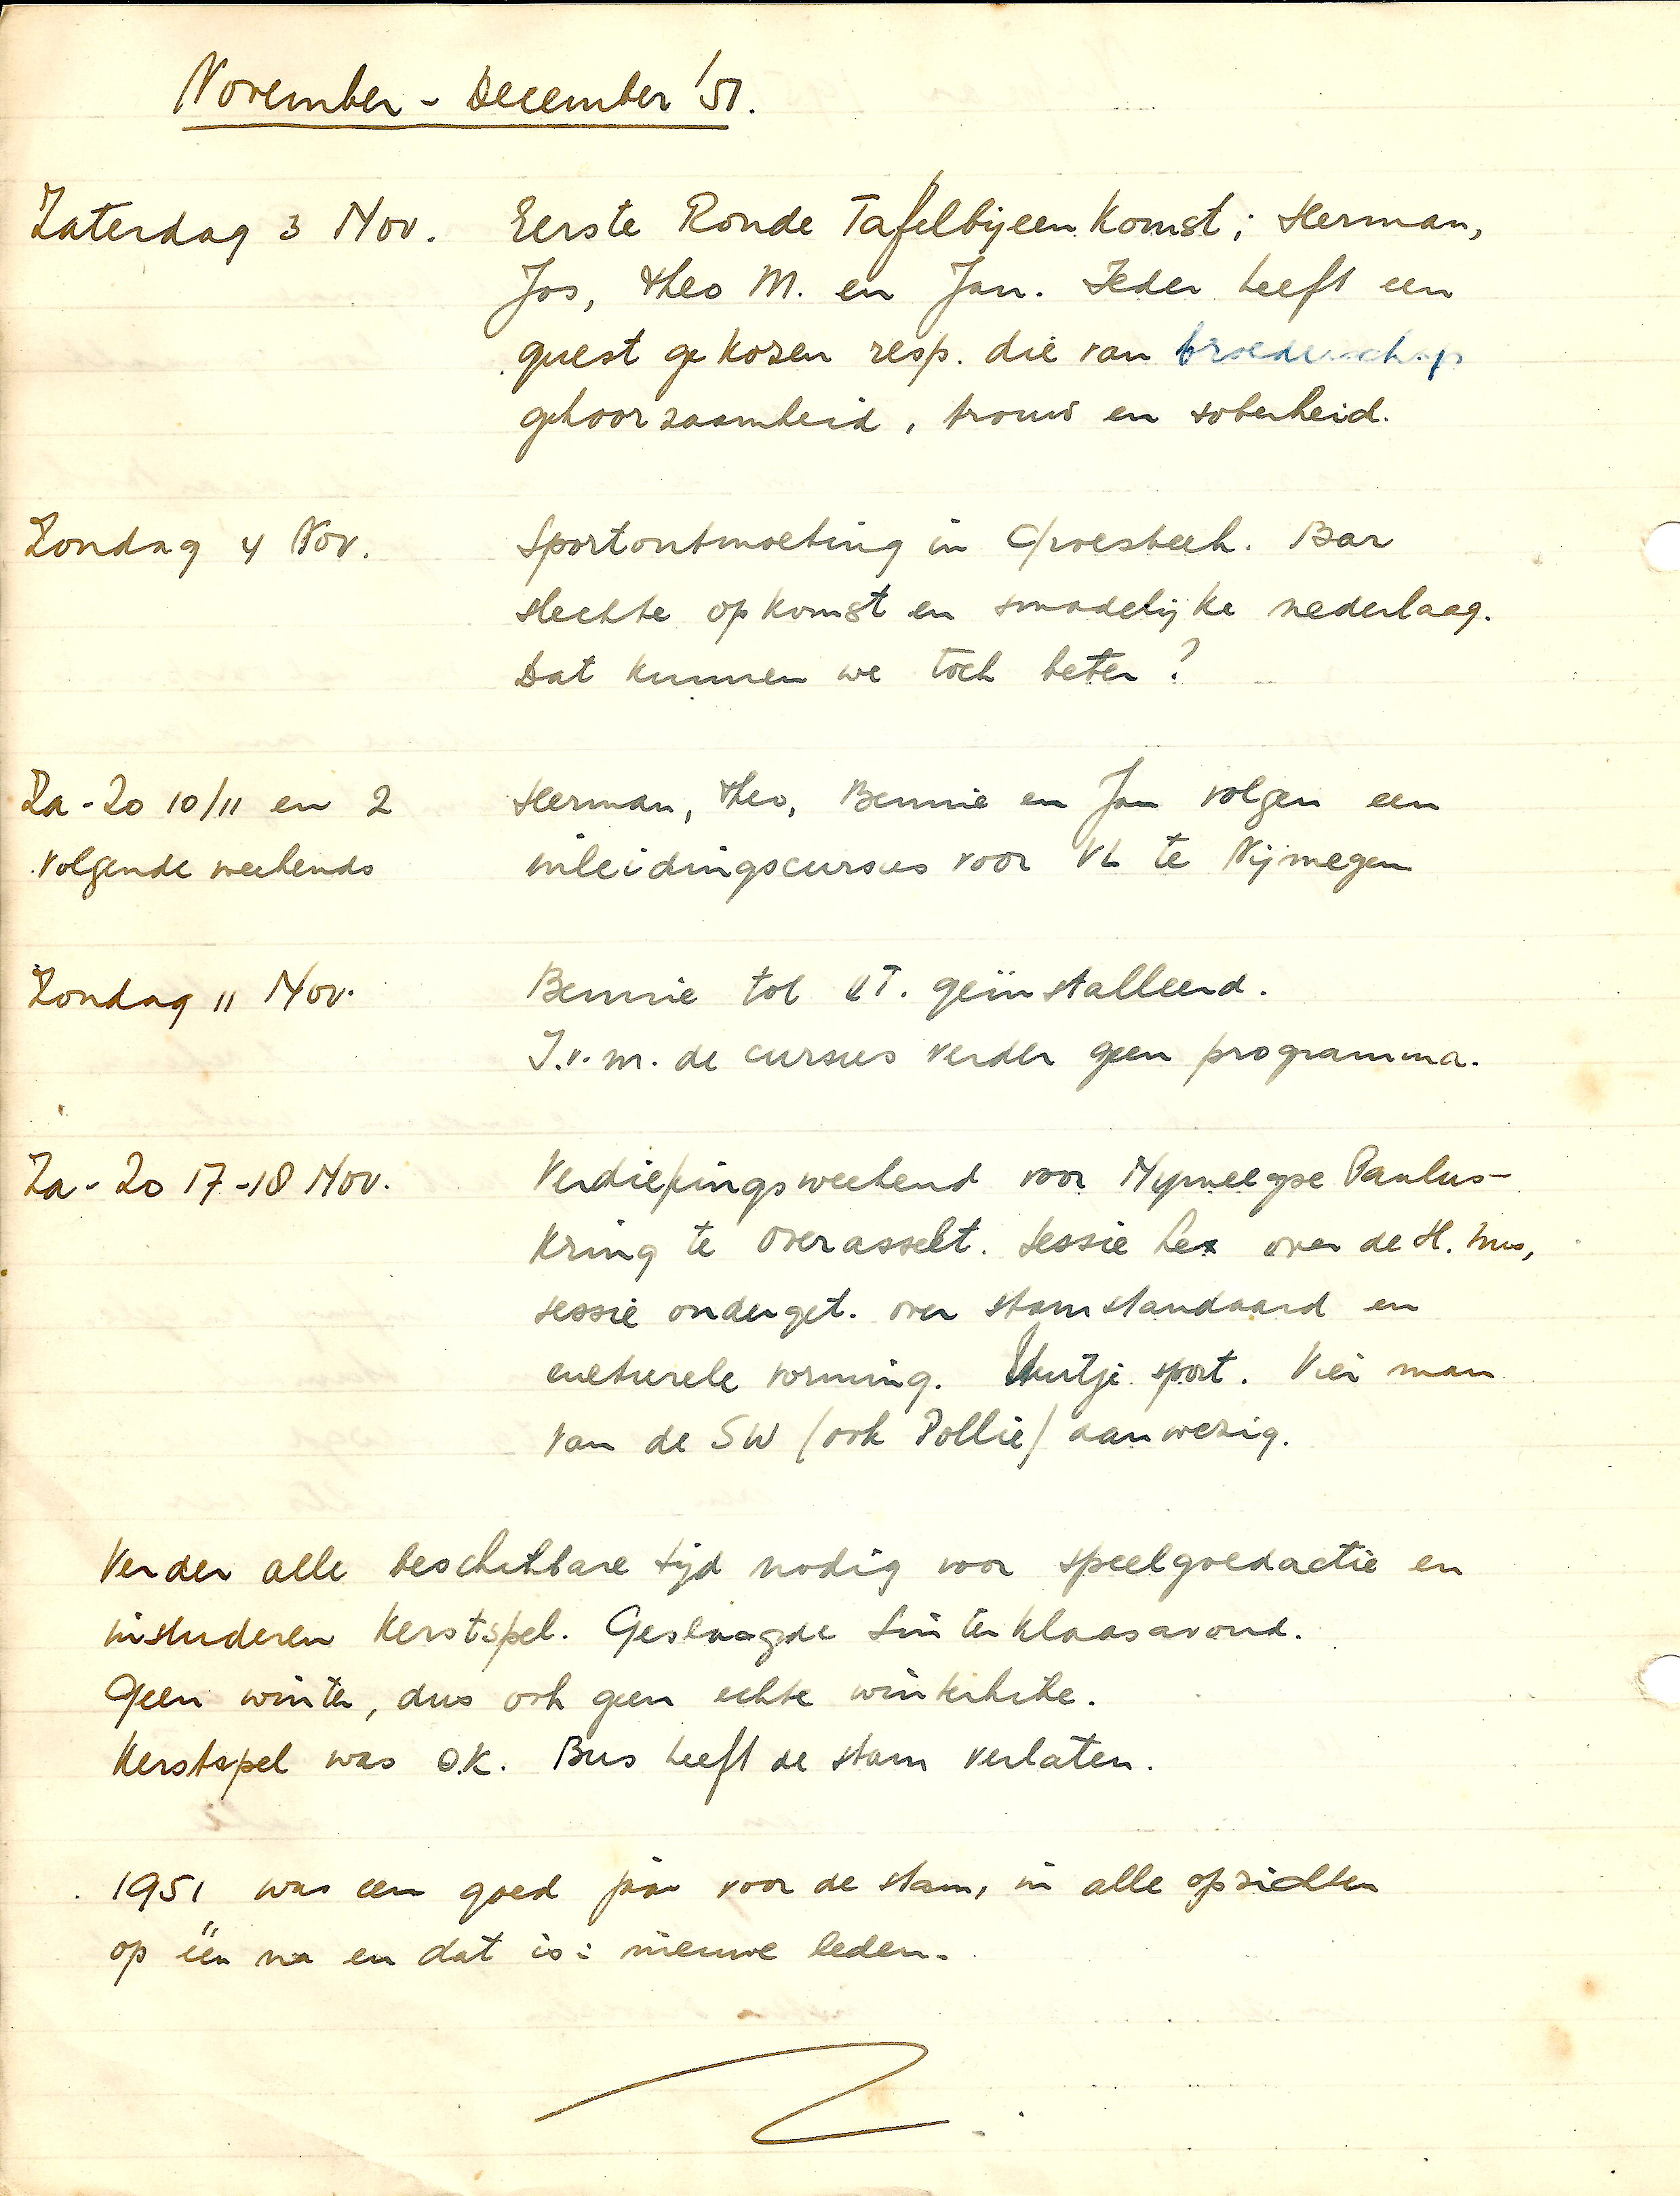 November - December '51.
Zaterdag 3 Nov. Eerste Ronde Tafelbijeenkomst; Herman,
Jos, Theo M. en Jan. Ieder heeft een
quest gekozen resp. die van broederschap
gehoorzaamheid, trouw en soberheid.
Zondag 4 Nov. Sportontmoeting in Groesbeek. Bar
slechte opkomst en smadelijke nederlaag.
Dat kunnen we toch beter?
Za-Zo 10/11 en 2 Herman, Theo, Bennie en Jan volgen een
volgende weekends inleidingscursus voor VL te Nijmegen
Zondag 11 Nov. Bennie tot VT. geïnstalleerd.
I.v.m. de cursus verder geen programma.
Za-Zo 17-18 Nov. Verdiepingsweekend voor Nijmeegse Paulus-
kring te Overasselt. Sessie Lex over de H. Mis,
sessie onderget. over stamstandaard en
culturele vorming. Uurtje sport. Vier man
van de SW (ook Pollie) aanwezig.
Verder alle beschikbare tijd nodig voor speelgoedactie en
instuderen Kerstspel. Geslaagde Sinterklaasavond.
Geen winter, dus ook geen echte winterhike.
Kerstspel was O.K. Bus heeft de stam verlaten.
1951 was een goed jaar voor de stam, in alle opzichten
op één na en dat is: nieuwe leden.